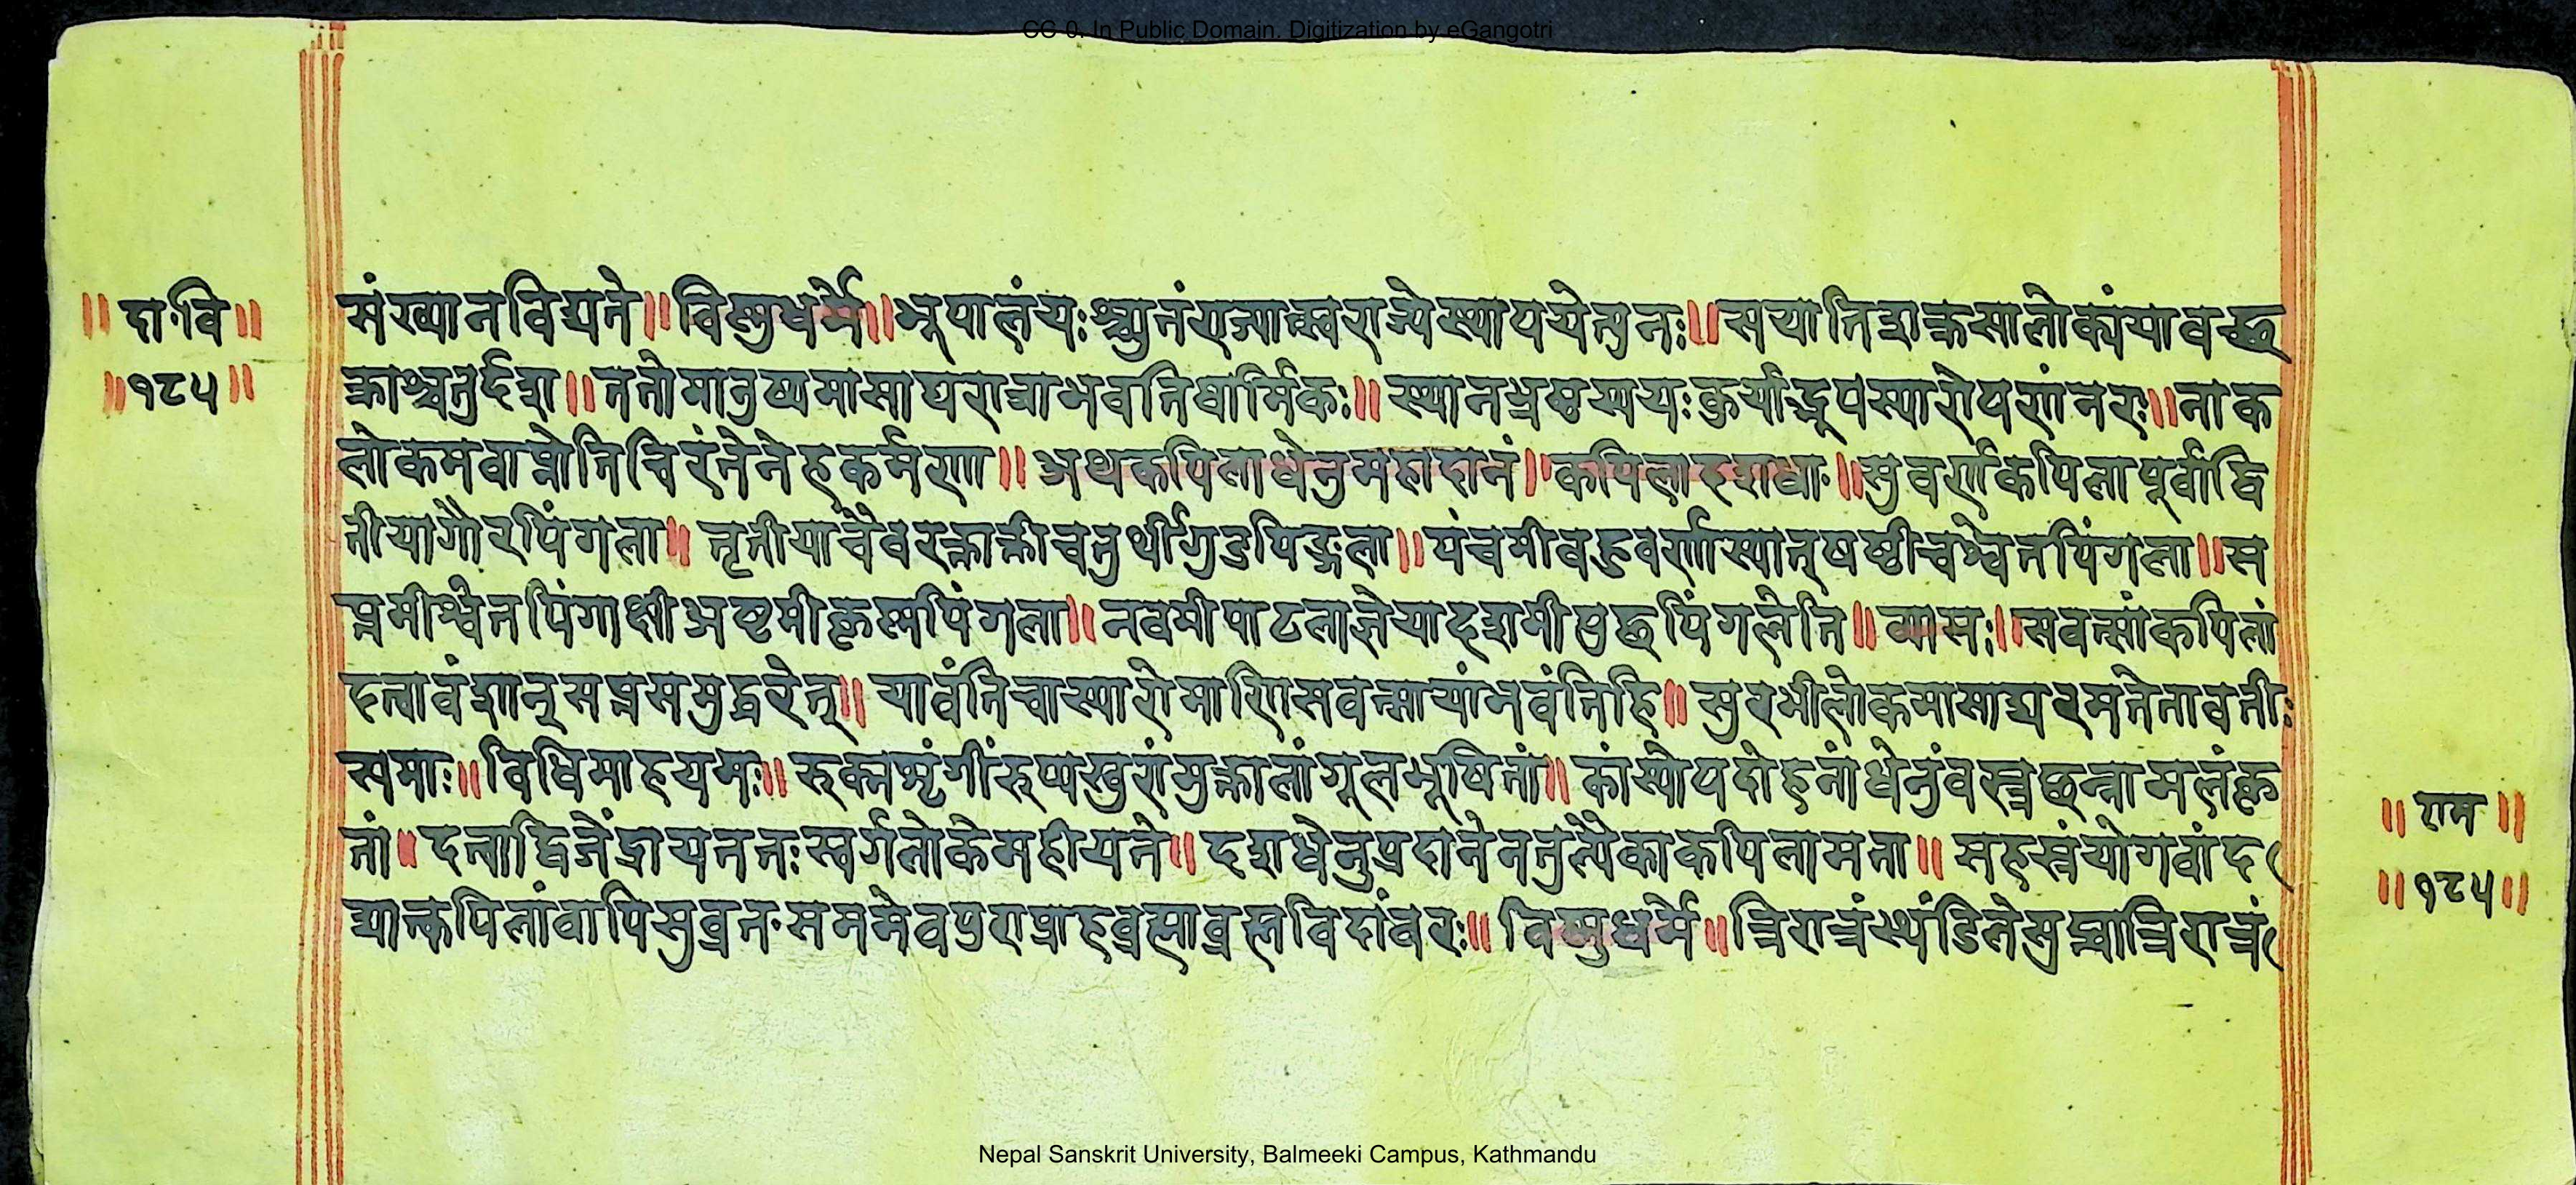 CC-0. In Public Domain. Digitization by eGangotri
॥ दा॰वि ॥
॥ १८५ ॥
संख्यानविद्यते ॥ विष्णुधर्मे ॥ भूपालंयःश्च्युतंराज्यात्स्वराज्येस्थापयेत्पुनः ॥ सयातिशक्रसालोक्यंयावच्छ
क्राश्चतुर्दश ॥ ततोमानुष्यमासाद्यराजाभवतिधार्मिकः ॥ स्थानभ्रष्टस्ययःकुर्याद्भूपस्यारोपणंनरः ॥ नाक
लोकमवाप्नोतिचिरंतेनेहकर्मणा ॥ अथकपिलाधेनुमहादानं ॥ कपिलाहशधा॰ ॥ सुवर्णकपिलापूर्वाद्वि
तीयागौरपिंगला ॥ तृतीयाचैवरक्ताक्षीचतुर्थीगुडपिङ्गला ॥ पंचमीबहुवर्णास्यात्षष्ठीचश्वेतपिंगला ॥ स
प्तमीश्वेतपिंगाक्षीअष्टमीकृष्णपिंगला ॥ नवमीपाटलाज्ञेयादशमीपुछपिंगलेति ॥ व्यासः ॥ सवत्सांकपिलां
दत्वावंशान्सप्तसमुद्धरेत् ॥ यावंतिचास्यारोमाणिसवत्सायांभवंतिहि ॥ सुरभीलोकमासाद्यरमतेतावतीः
समाः ॥ विधिमाहयमः ॥ रुक्मशृंगींरुप्यखुरांमुक्तालांगूलभूषितां ॥ कांस्योपदोहनांधेनुंवस्त्रछन्नामलंकृ
तां ॥ दत्वाद्विजेंद्रायततःस्वर्गलोकेमहीयते ॥ दशधेनुप्रदानेनतुल्यैकाकपिलामता ॥ सहस्रंयोगवांद
द्यात्कपिलांवापिसुव्रत॰सममेवपुराप्राहब्रह्माब्रह्मविदांवरः ॥ विष्णुधर्मे ॥ त्रिरात्रंस्थंडिलेसुप्त्वात्रिरात्रं
॥ राम ॥
॥ १८५ ॥
Nepal Sanskrit University, Balmeeki Campus, Kathmandu